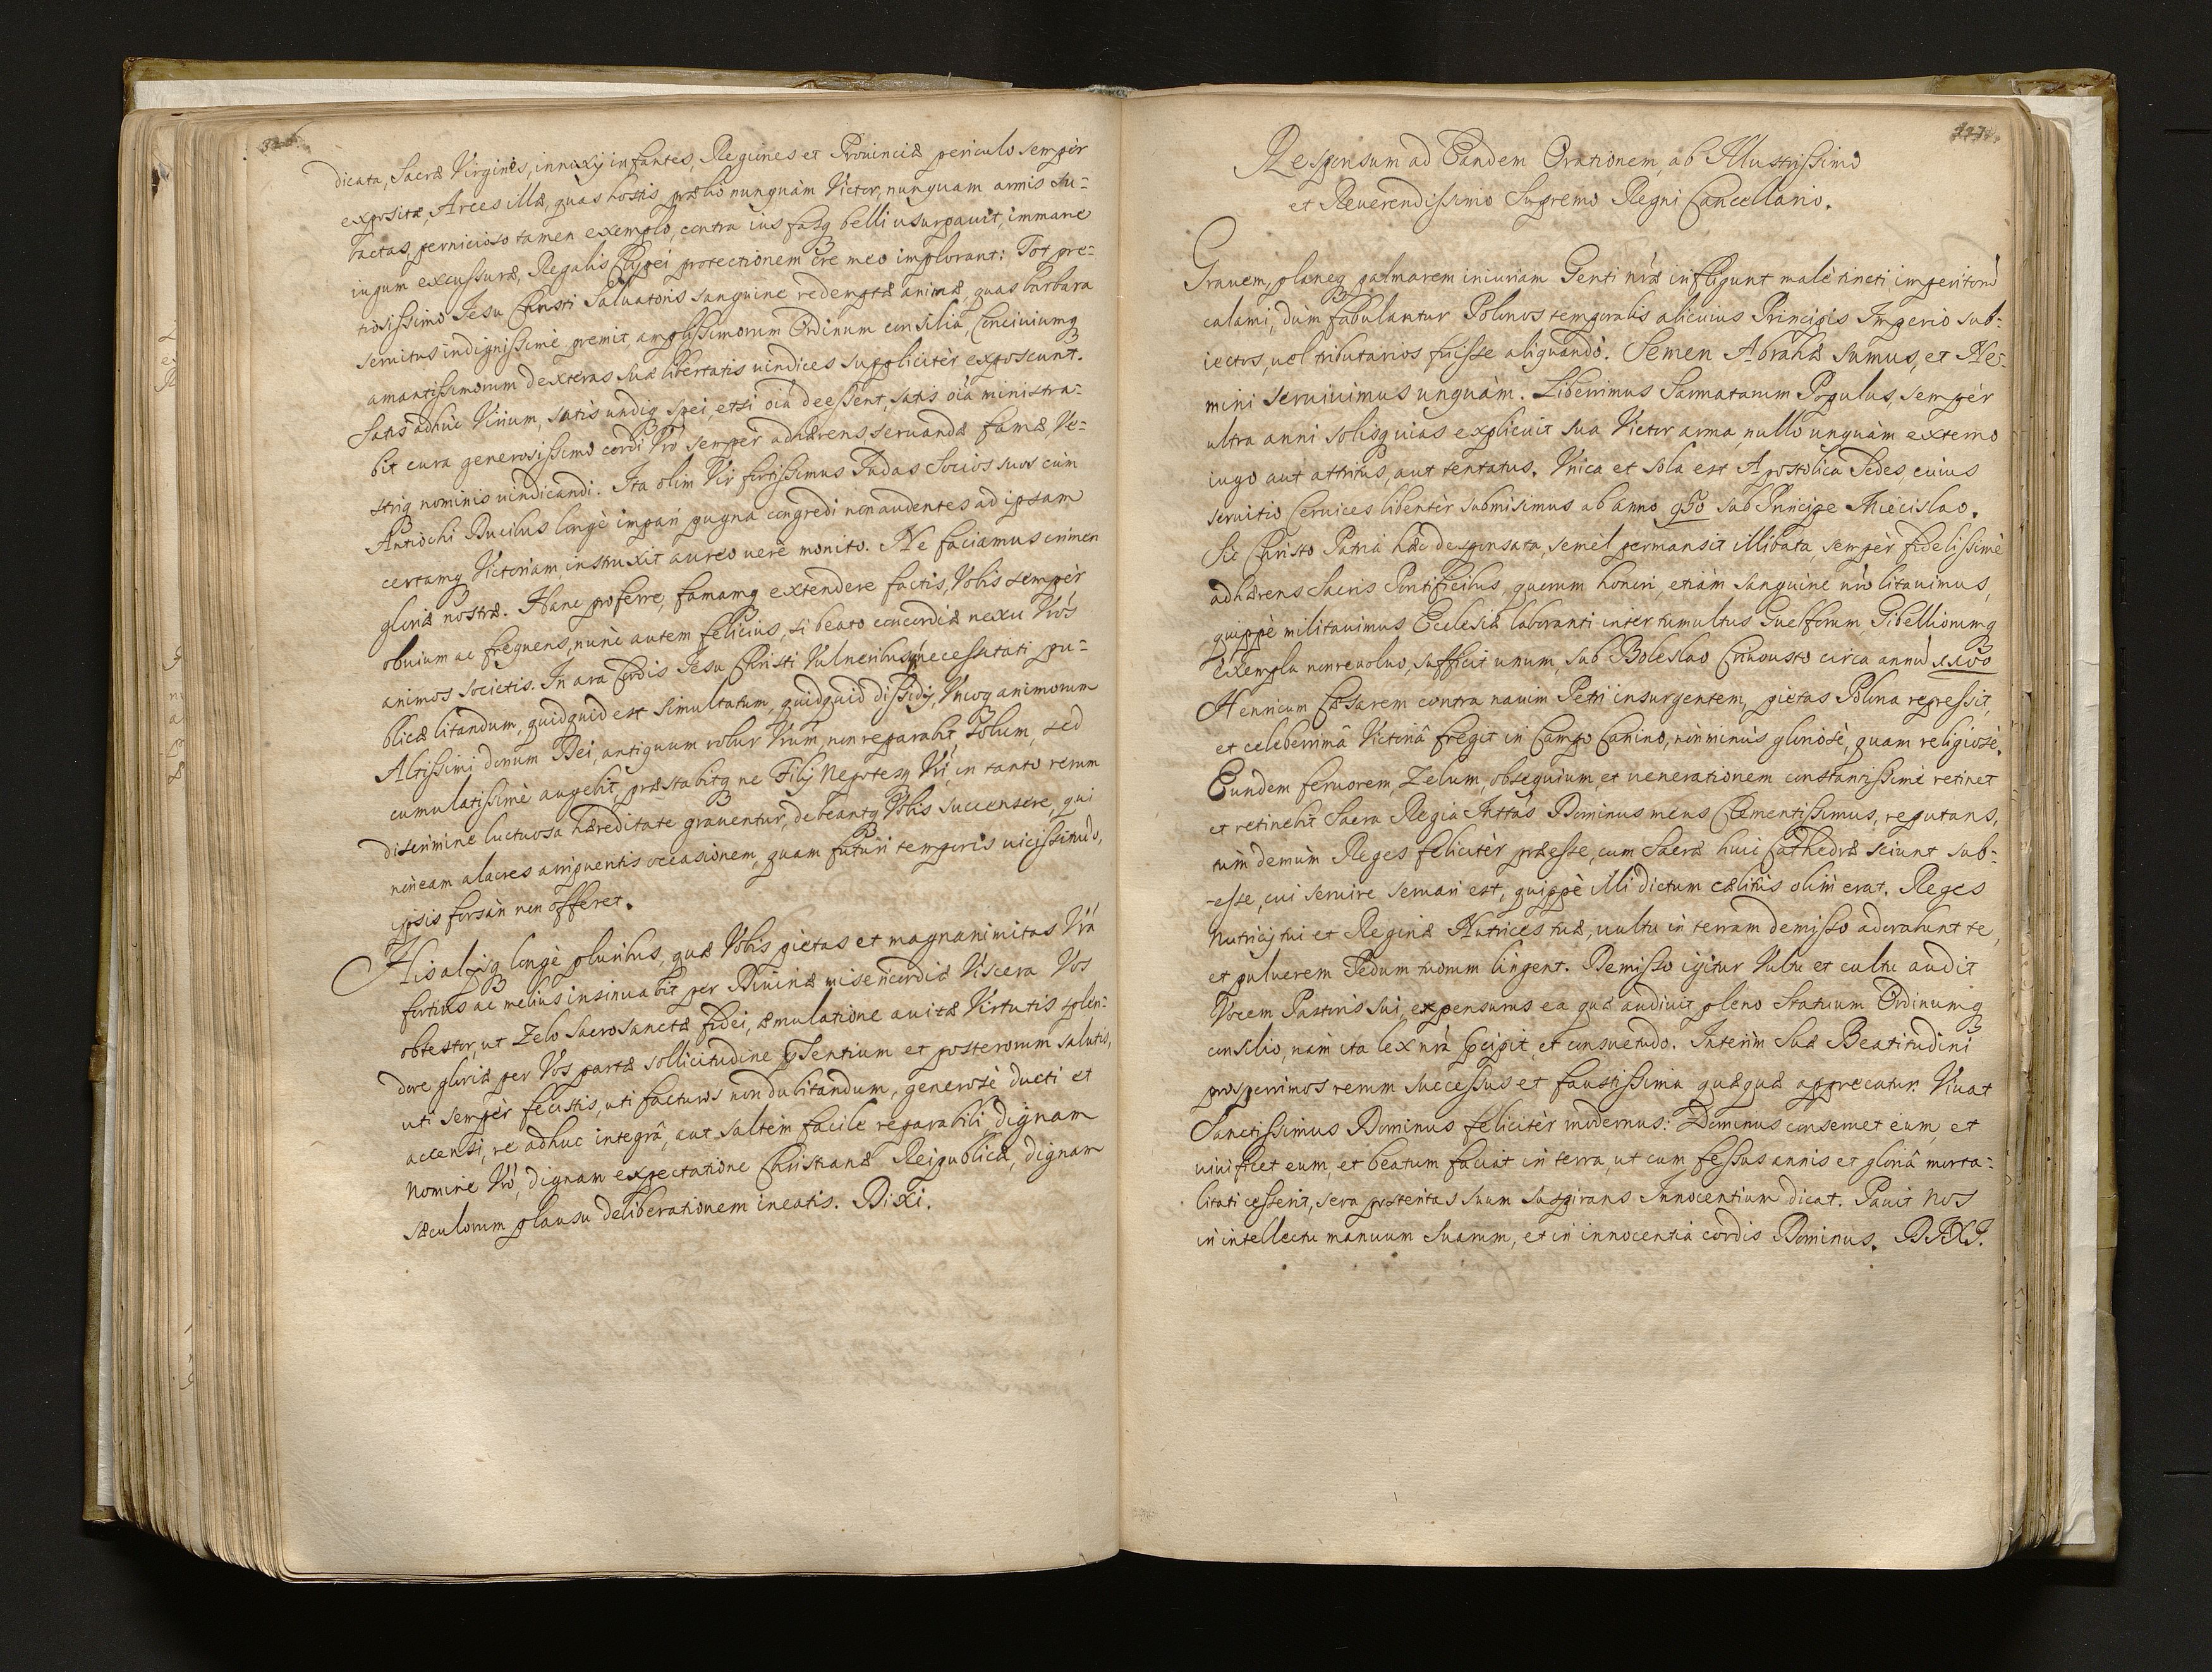 326.
dicata, Sacræ Virgines, innoxij infantes, Regiones et Prouinciæ periculo sempèr
expositæ, Arces illæ, quas hostis, prælio nunquàm Victor, nunquam armis su-
bactas, pernicioso tamen exemplo, contra ius fasq belli usurpauit, immane
iugum excussuræ, Regalis Clypei protectionem ore meo implorant: Tot pre-
tiosissimo Jesu Christi Saluatoris sanguine redemptæ animæ, quas barbara
seruitus indignissimè premit, amplissimorum Ordinum consilia, Conciuiumq
amantissimorum dexteras suæ libertatis uindices suppliciter exposcunt.
Satis adhùc Virium, satis undiq spei, etsi oia deessent, satis oia ministra-
bit cura generosissimo cordi Vro sempèr adhærens, seruandæ famæ, Ve-
striq nominis uindicandi. Ita olim Vir fortissimus Judas Socios suos cùm
Antiochi Ducibus longè impari pugna congredi non audentes ad ipsam
certamq Victoriam instruxit aureo uerè monito. Ne faciamus crimen
gloriæ nostræ. Hanc proferre, famamq extendere factis, Vobis sempèr
obuium ac frequens, nunc autem felicius, si beato concordiæ nexu Vros
animos societis. In ara Cordis Jesu Christi Vulneribus necessitati pu-
blicæ litandum, quidquid est simultatum, quidquid dissidij, Vnioq animorum
Altissimi donum Dei, antiquum robur Vrum, non reparabit solum, sed
cumulatissimè augebit, præstabitq ne Filij Nepotesq Vri, in tanto rerum
discrimine luctuosa hæreditate grauentur, debeantq Vobis succensere, qui
non eam alacres arripuentis occasionem, quam futuri temporis uicissitudo,
ipsis forsàn non offeret.
His alijsq longè pluribus, quæ Vobis pietas et magnanimitas Vra
fortius ac melius insinuabit per Diuinæ misericordiæ Viscera Vos
obtestor, ut Zelo Sacrosanctæ fidei, æmulatione auitæ Virtutis splen-
dore gloriæ per Vos partæ sollicitudine pSentium et posterorum salutis,
uti sempèr fecistis, uti facturos non dubitandum, generosè ducti et
accensi, re adhuc integrâ, aut saltèm facile reparabili, dignam
Nomine Vro, dignam expectatione Christianæ Reipublicæ, dignam
sæculorum plausu deliberationem ineatis. Dixi.
327.
Responsum ad Eandem Orationem, ab Illustrissimo
et Reuerendissimo Supremo Regni Cancellario.
Grauem, planeq palmarem iniuriam Genti nræ infligunt malè tincti imperitorũ
calami, dùm fabulantur Polonos temporalis alicuius Principis Imperio sub-
iectos, uel tributarios fuisse aliquandò. Semen Abrahæ sumus, et Ne-
mini seruiuimus unquàm. Liberrimus Sarmatarum Populus, sempèr
ultra anni solisq uias explicuit sua Victor arma nullo unquàm externo
iugo aut attritus, aut tentatus. Vnica et sola est Apostolica Sedes, cuius
seruitio Ceruices libentèr submisimus ab anno 950 sub Principe Miecislao.
Sic Christo Patria hæc desponsata, semèl permansit illibata, sempèr fidelissimè
adhærens Sacris Pontificibus, quorum honori, etiàm sanguine nro litauimus,
quippè militauimus Ecclesiæ laboranti inter tumultus Guelforum, Gibellionumq
Exempla non reuoluo, sufficit unum, sub Boleslao Criuousto circa annũ 1100
Henricum Cæsarem contra nauim Petri insurgentem, pietas Polona repressit,
et celeberrimâ Victoriâ fregit in Campo Canino, nòn minùs gloriosè, quam religiosè.
Eundem feruorem, Zelum, obsequium, et uenerationem constantissimè retinet
et retinebit Sacra Regia Mttas Dominus meus Clementissimus, reputans,
tùm demùm Reges felicitèr præesse, cum Sacræ huic Cathedræ sciunt sub-
-esse, cui seruire seruari est, quippè illi dictum cælitùs olìm erat. Reges
Nutricij tui et Reginæ Nutrices tuæ, uultu in terram demisso adorabunt te,
et puluerem Pedum tuorum lingent. Demisso igitur Vultu et cultu audit
Vocem Pastoris sui, expensurus ea quæ audiuit pleno Statuum Ordinumq
consilio, nàm ita lex nra pcipit, et consuetudo. Interìm Suæ Beatitudini
prosperrimos rerum successus et faustissima quæquæ apprecatur. Viuat
Sanctissimus Dominus felicitèr modernus: Dominus conseruet eum, et
uiuificet eum, et beatum faciat in terra, ut cum fessus annis et gloriâ morta-
litati cesserit, sera posteritas suum suspirans Innocentium dicat. Pauit nos
in intellectu manuum suarum, et in innocentia cordis Dominus. DIXI.